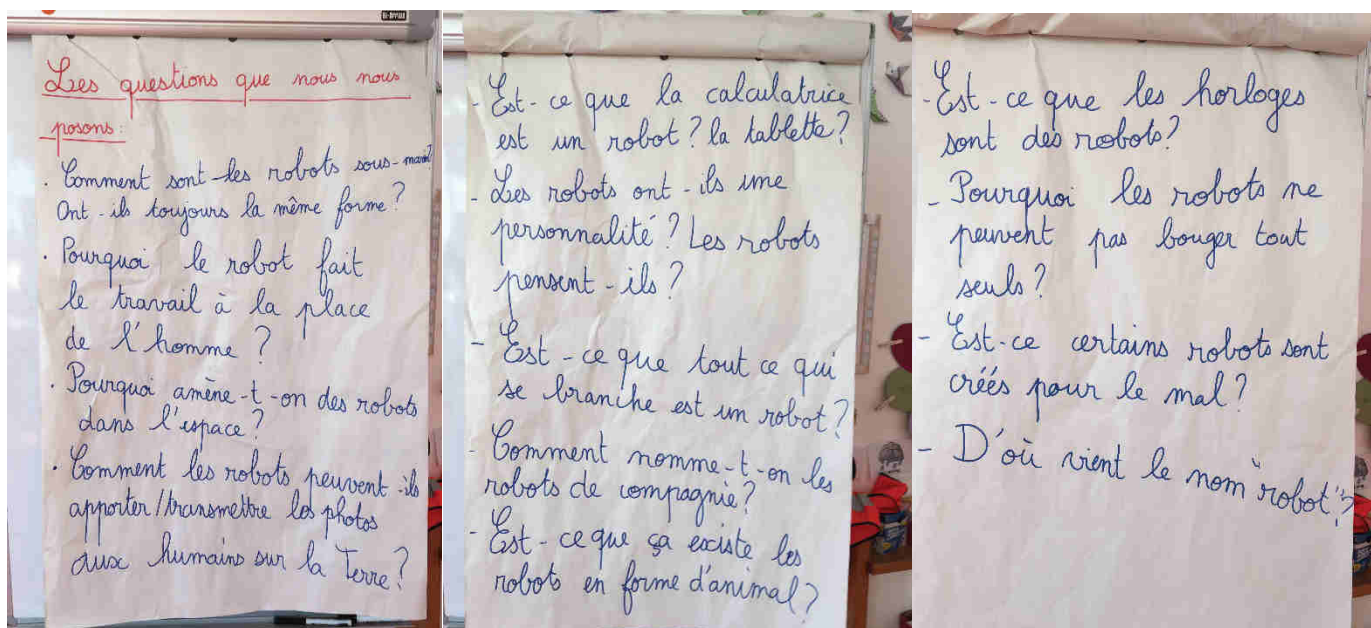 Les questions que nous nous
posons:
. Comment sont-les robots sous-marin?
Ont-ils toujours la même forme?
. Pourquoi le robot fait
le travail à la place
de l'homme?
. Pourquoi amène-t-on des robots
dans l'espace?
. Comment les robots peuvent-ils
apporter/transmettre les photos
aux humains sur la Terre?
- Est-ce que la calculatrice
est un robot? la tablette?
- Les robots ont-ils une
personnalité? Les robots
pensent-ils?
- Est-ce que tout ce qui
se branche est un robot?
- Comment nomme-t-on les
robots de compagnie?
- Est-ce que ça existe les
robots en forme d'animal?
- Est-ce que les horloges
sont des robots?
- Pourquoi les robots ne
peuvent pas bouger tout
seuls?
- Est-ce certains robots sont
créés pour le mal?
- D'où vient le nom "robot"?